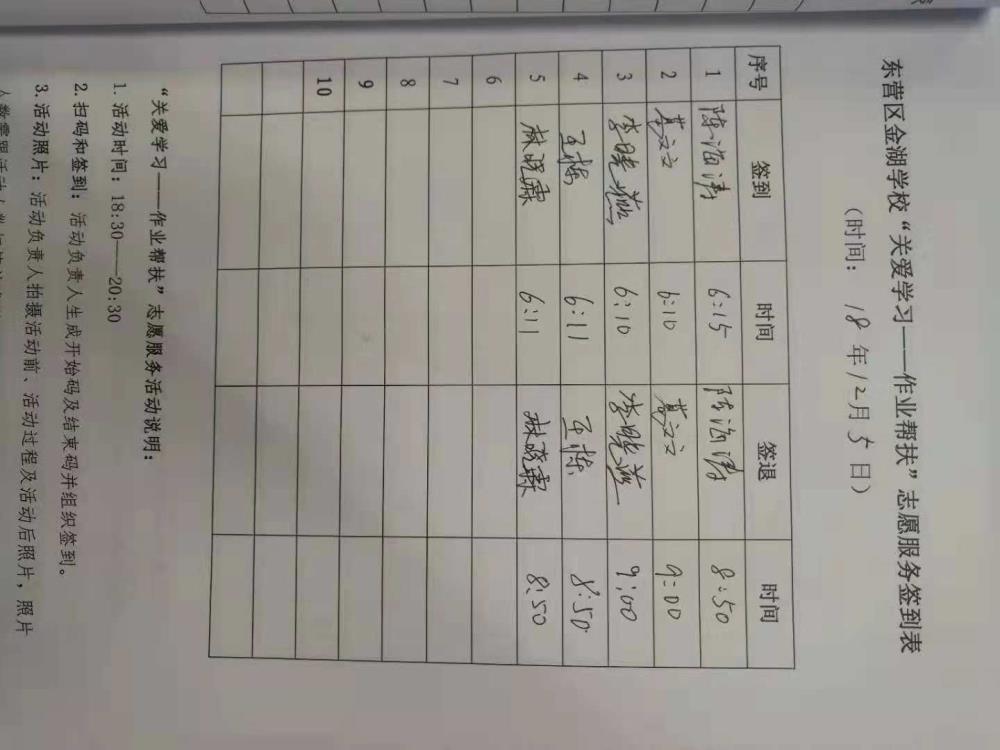 东营区金湖学校“关爱学习——作业帮扶”志愿服务签到表
(时间: 18 年 12 月 5 日)
序号 签到 时间 签退 时间
1 陈海涛 6:15 陈海涛 8:50
2 6:10 9:00
3 李晓燕 6:10 李晓燕 9:00
4 王栋 6:11 王栋 8:50
5 林晓霖 6:11 林晓霖 8:50
6
7
8
9
10
“关爱学习——作业帮扶”志愿服务活动说明:
1. 活动时间: 18:30——20:30
2. 扫码和签到: 活动负责人生成开始码及结束码并组织签到。
3. 活动照片: 活动负责人拍摄活动前、活动过程及活动后照片, 照片